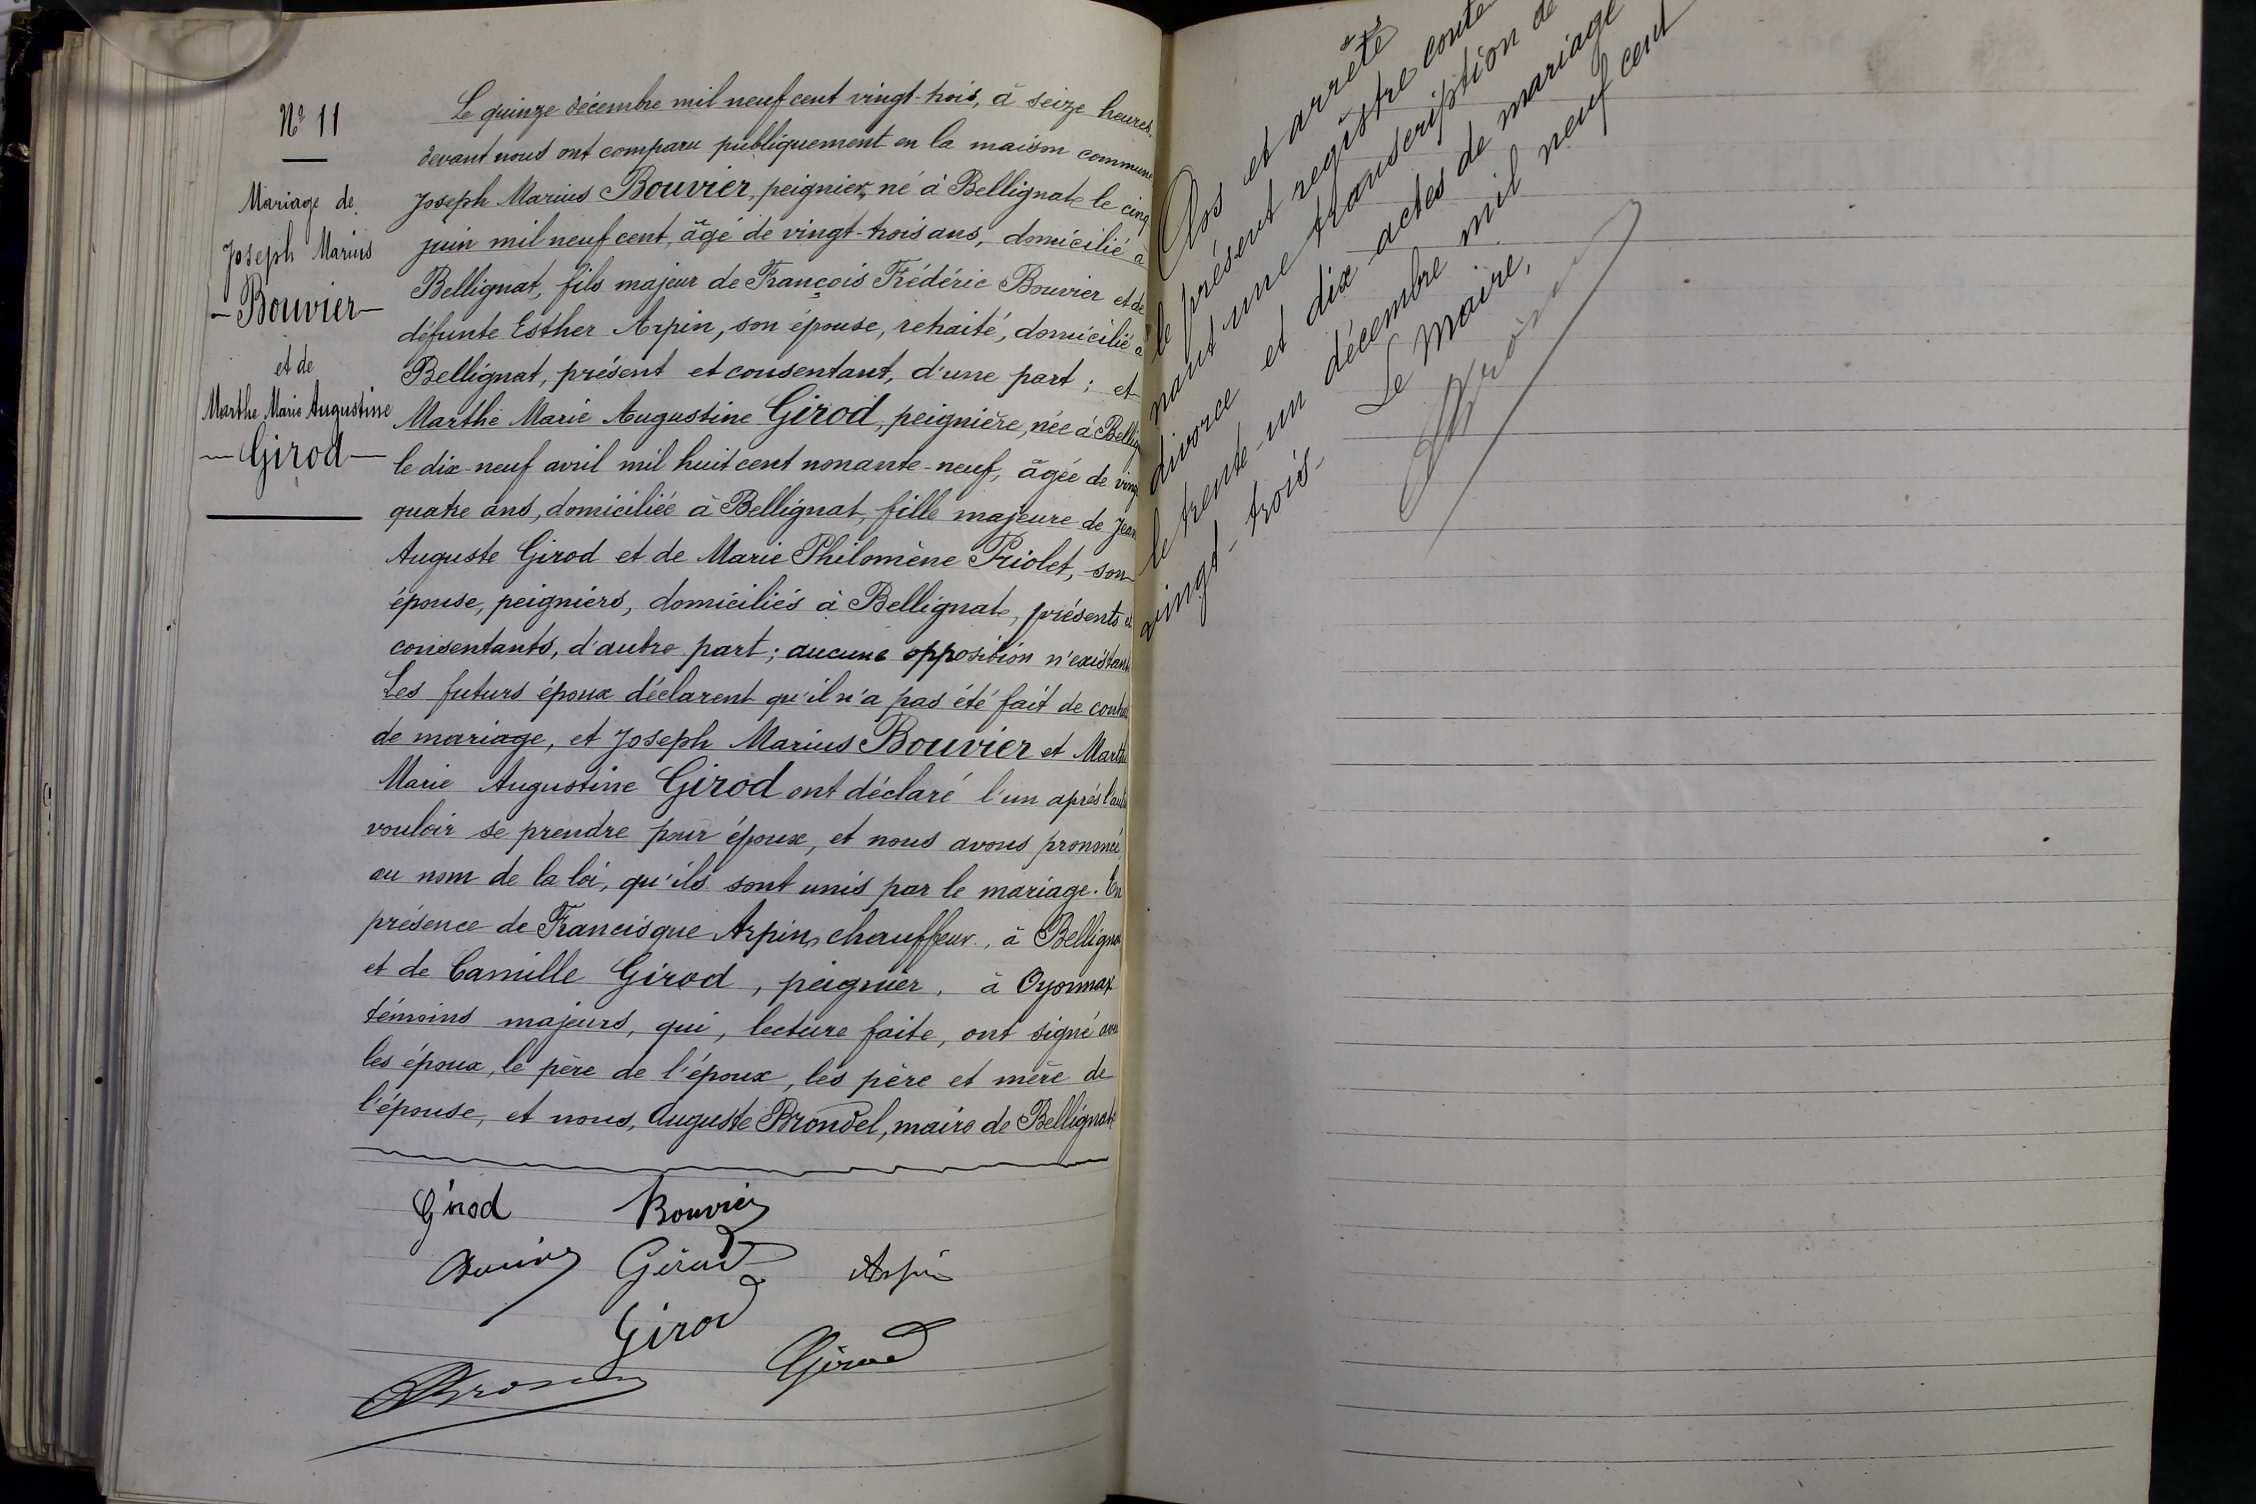 Nº 11
Mariage de
Joseph Marius
- Bouvier -
et de
Marthe Marie Augustine
- Girod -
Le quinze décembre mil neuf cent vingt-trois, à seize heures,
devant nous ont comparu publiquement en la maison commune
Joseph Marius Bouvier, peignier, né à Bellignat le cinq
juin mil neuf cent, âgé de vingt-trois ans, domicilié à
Bellignat, fils majeur de François Frédéric Bouvier et de
défunte Esther Arpin, son épouse, retraité, domicilié à
Bellignat, présent et consentant, d'une part ; et
Marthe Marie Augustine Girod, peignière, née à Bellig
le dix-neuf avril mil huit cent nonante-neuf, âgée de vingt
quatre ans, domiciliée à Bellignat, fille majeure de Jean
Auguste Girod et de Marie Philomène Priolet, son
épouse, peigniers, domiciliés à Bellignat, présents et
consentants, d'autre part ; aucune opposition n'existant
Les futurs époux déclarent qu'il n'a pas été fait de contrat
de mariage, et Joseph Marius Bouvier et Marthe
Marie Augustine Girod ont déclaré l'un après l'autre
vouloir se prendre pour époux, et nous avons prononcé
au nom de la loi, qu'ils sont unis par le mariage. En
présence de Francisque Arpin, chauffeur, à Bellignat
et de Camille Girod, peignier, à Oyonnax
témoins majeurs, qui, lecture faite, ont signé avec
les époux, le père de l'époux, les père et mère de
l'épouse, et nous, Auguste Brondel, maire de Bellignat
Girod Bouvier
Girod Arpin
Girod
Girod
Clos et arrêté
le présent registre conte
nant une transcription de
divorce et dix actes de mariage
le trente-un décembre mil neuf cent
vingt-trois.
Le Maire,